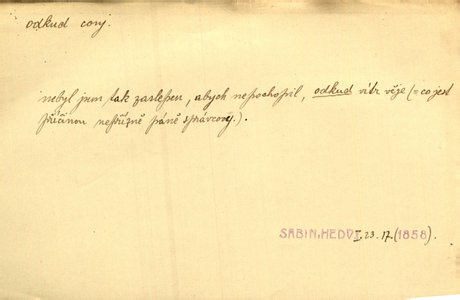 odkud conj.
nebyl jsem tak zaslepen, abych nepochopil, odkud vítr věje (= co jest
příčinou nepřízně páně správcovy.).
SABIN, HEDV I, 23. 17. (1858).